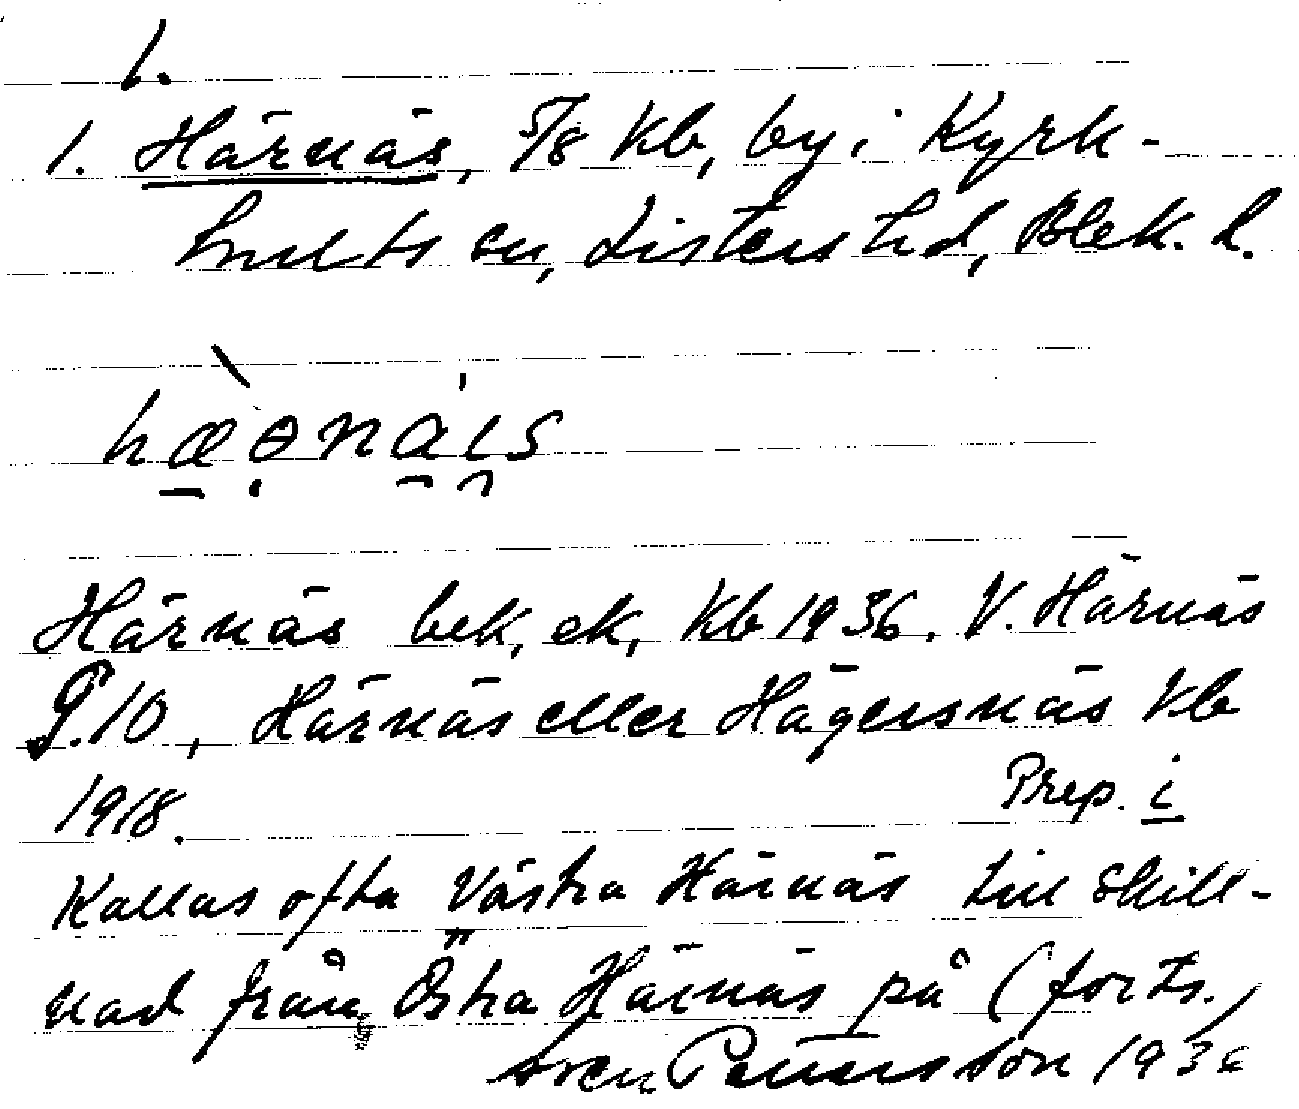 1.
1. Härnäs, 5/8 Kb, by i Kyrk-
hults sn, Listers hd, Blek. l.
hæənaıs
Härnäs bek, ek, Kb 1936. V. Härnäs
G.10, Härnäs eller Hägersnäs Kb
1918.
Prep. i
Kallas ofta Västra Härnäs till skill-
nad från Östra Härnäs på (forts.)
Sven 1936